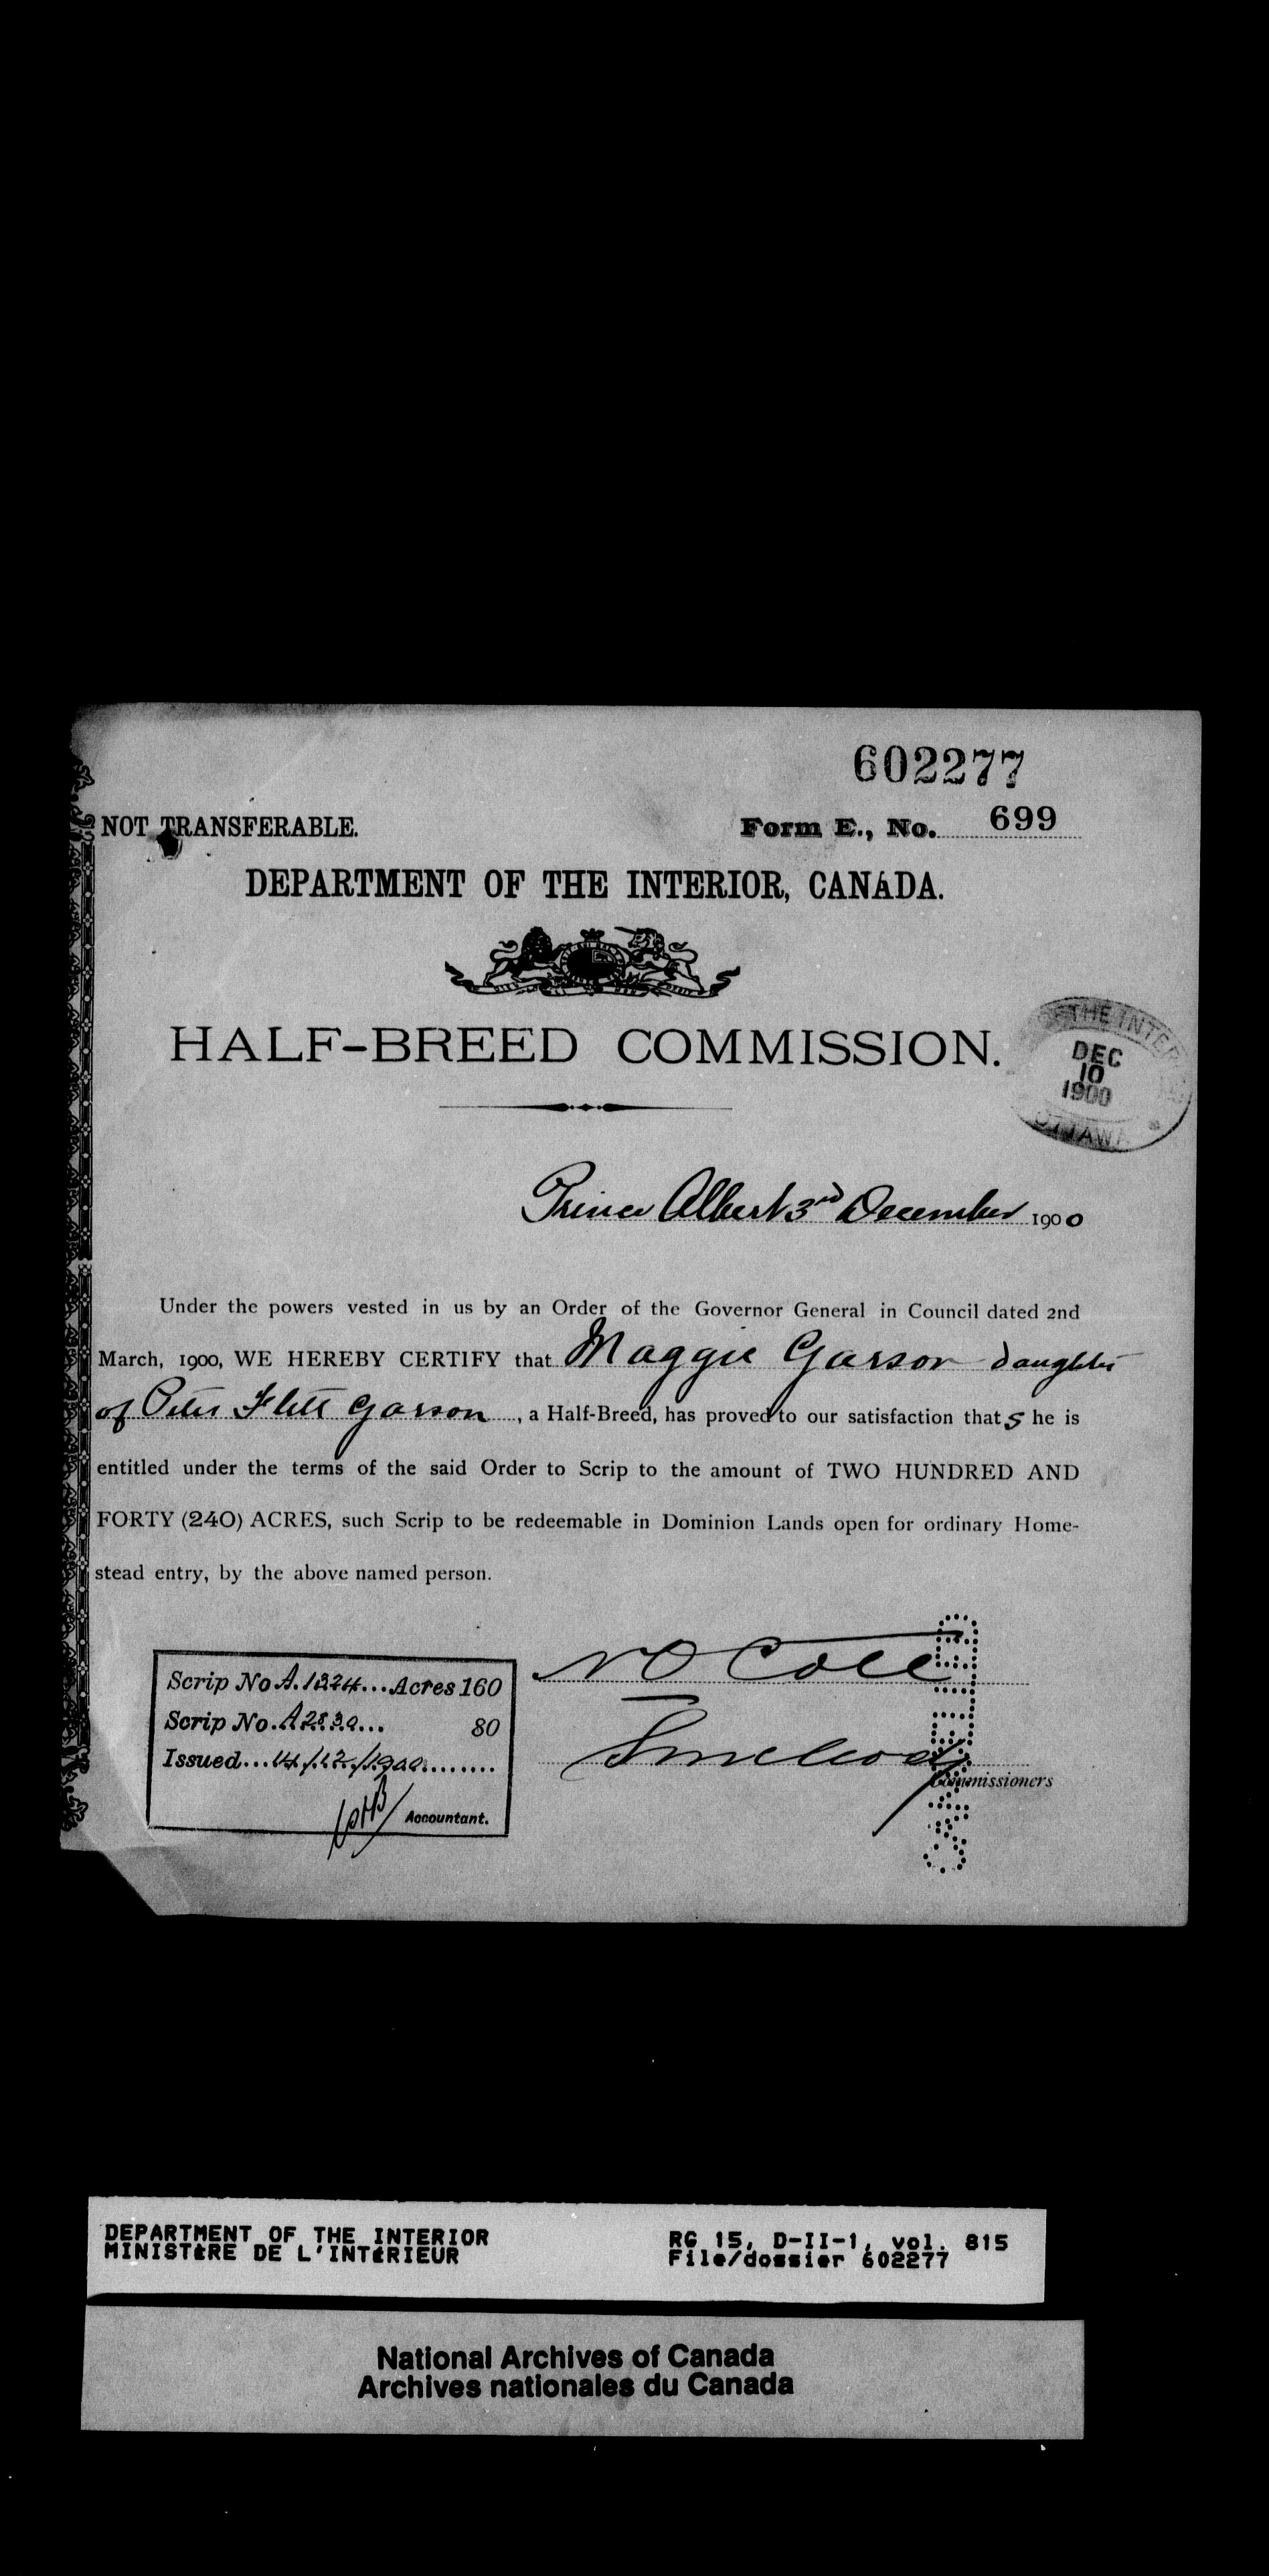 602277
NOT TRANSFERABLE.
Form E., No. 699
DEPARTMENT OF THE INTERIOR, CANADA.
HALF-BREED COMMISSION.
OF THE INTE
DEC
10
1900
OTTAWA
Prince Albert 3rd December 1900
Under the powers vested in us by an Order of the Governor General in Council dated 2nd
March, 1900, WE HEREBY CERTIFY that Maggie Garson daughter
of Peter Flett Garson, a Half-Breed, has proved to our satisfaction that s he is
entitled under the terms of the said Order to Scrip to the amount of TWO HUNDRED AND
FORTY (240) ACRES, such Scrip to be redeemable in Dominion Lands open for ordinary Home-
stead entry, by the above named person.
N O Coté
Commissioners
Scrip No A.1324...Acres 160
Scrip No. A2830... 80
Issued...14/12/1900........
Accountant.
DEPARTMENT OF THE INTERIOR
MINISTÈRE DE L'INTÉRIEUR
RG 15, D-II-1, vol. 815
File/dossier 602277
National Archives of Canada
Archives nationales du Canada